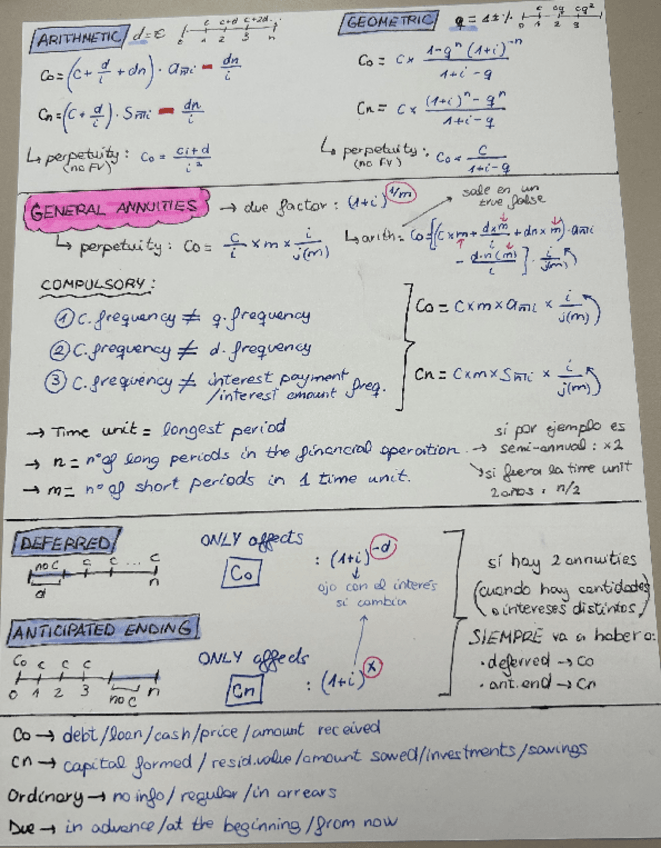 ARITHMETIC d=€
c c+d c+2d...
0 1 2 3 n
C₀=(c+ d/i + dn) · aₙ̅ᵢ − dn/i
Cₙ=(c+ d/i) · Sₙ̅ᵢ − dn/i
↳ perpetuity: C₀ = ci+d / i²
(no FV)
GEOMETRIC q = 1±%
c cq cq²
0 1 2 3
C₀ = C× 1-qⁿ (1+i)⁻ⁿ / 1+i-q
Cn = C× (1+i)ⁿ - qⁿ / 1+i-q
↳ perpetuity: C₀ = C / 1+i-q
(no FV)
GENERAL ANNUITIES → due factor: (1+i)^1/m
sale en un
true false
↳ perpetuity: C₀ = c/i × m × i/j(m)
↳ arith = C₀=[(C×m+ d×m/i + dn×m) · aₙ̅ᵢ
- d·n(m)/i] · i/j(m)
COMPULSORY:
① C. frequency ≠ q. frequency
② C. frequency ≠ d. frequency
③ C. frequency ≠ interest payment
/interest amount freq.
C₀ = C×m×aₙ̅ᵢ × i/j(m)
Cn = C×m×Sₙ̅ᵢ × i/j(m)
→ Time unit = longest period
→ n= nº of long periods in the financial operation.
→ m= nº of short periods in 1 time unit.
si por ejemplo es
→ semi-annual: ×2
↘ si fuera la time unit
2 años: n/2
DEFERRED
no C c c ... c
d n
ONLY affects
C₀ : (1+i)^-d
↓
ojo con el interés
si cambia
ANTICIPATED ENDING
C₀ c c c
0 1 2 3 n
no C
ONLY affects
Cn : (1+i)^x
si hay 2 annuities
(cuando hay cantidades
o intereses distintos)
SIEMPRE va a haber o:
· deferred → C₀
· ant. end → Cn
C₀ → debt/loan/cash/price/amount received
Cn → capital formed / resid.value/amount saved/investments/savings
Ordinary → no info/ regular/in arrears
Due → in advance/at the beginning/from now